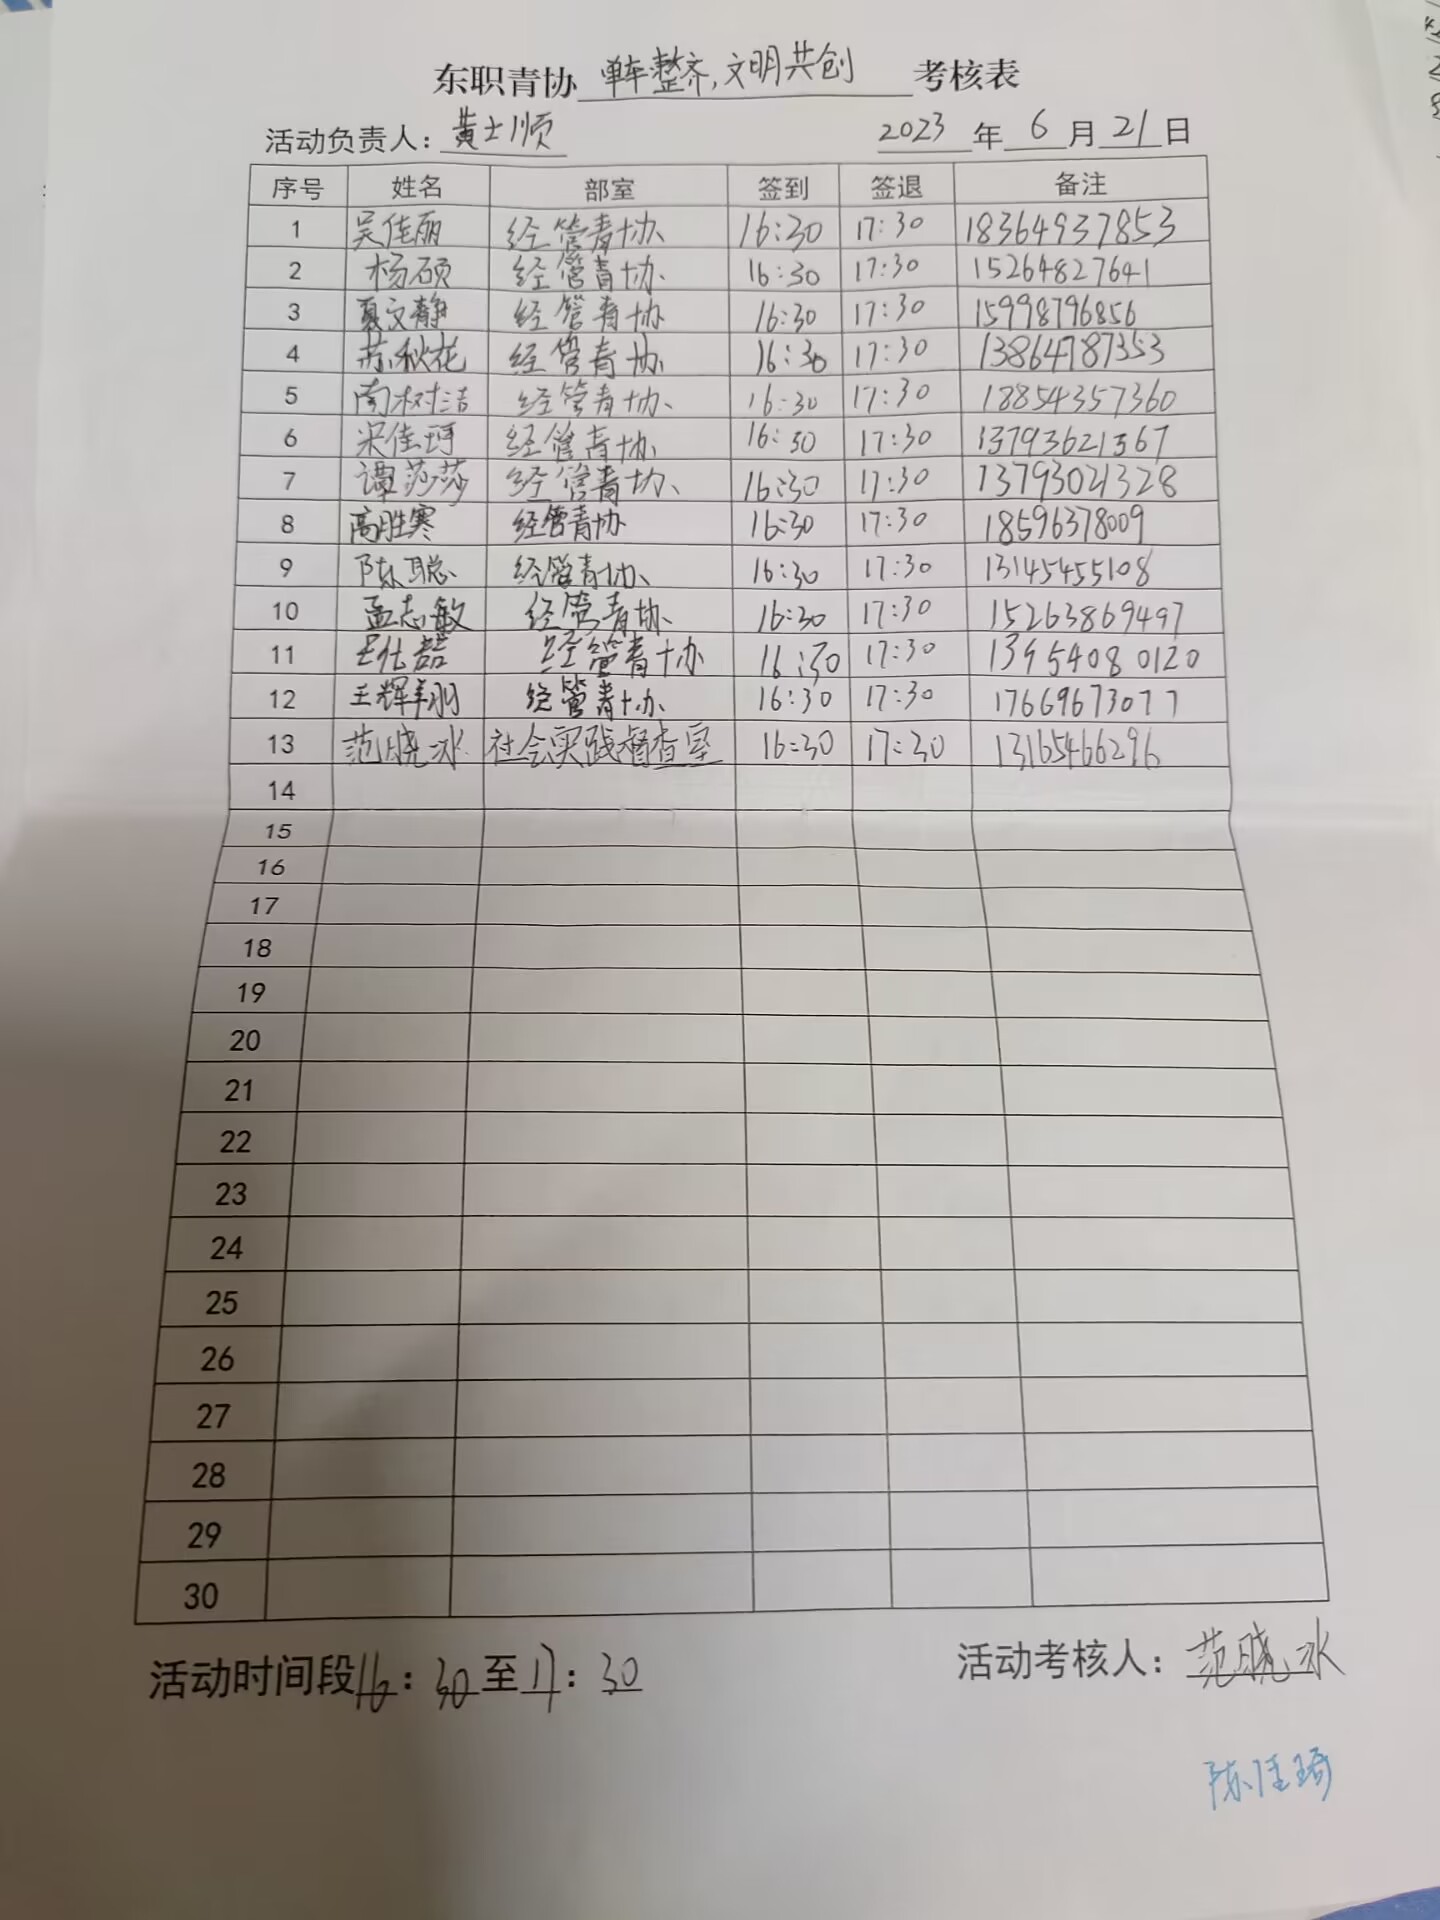 东职青协 单车整齐,文明共创 考核表
活动负责人: 黄士顺 2023 年 6 月 21 日
序号 姓名 部室 签到 签退 备注
1 吴佳丽 经管青协 16:30 17:30 18364937853
2 杨硕 经管青协 16:30 17:30 15264827641
3 夏文静 经管青协 16:30 17:30 15998796856
4 苏秋花 经管青协 16:30 17:30 13864787353
5 南树洁 经管青协 16:30 17:30 18854357360
6 宋佳珂 经管青协 16:30 17:30 13793621367
7 谭莎莎 经管青协 16:30 17:30 13793021328
8 高胜寒 经管青协 16:30 17:30 18596378009
9 陈聪 经管青协 16:30 17:30 13145455108
10 孟志敏 经管青协 16:30 17:30 15263869497
11 经管青协 16:30 17:30 13954080120
12 王辉翔 经管青协 16:30 17:30 17669673077
13 范晓冰 社会实践督查室 16:30 17:30 13165466296
14
15
16
17
18
19
20
21
22
23
24
25
26
27
28
29
30
活动时间段16:30至17:30 活动考核人: 范晓冰
陈佳琦